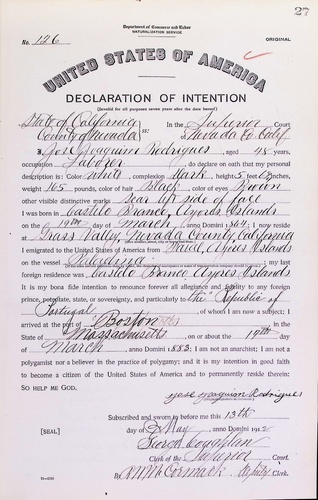 27
Department of Commerce and Labor
NATURALIZATION SERVICE
No. 126 ORIGINAL
UNITED STATES OF AMERICA
DECLARATION OF INTENTION
(Invalid for all purposes seven years after the date hereof)
State of California In the Superior Court
County of Nevada ss: of Nevada Co. Calif.
I, Jose Joaquim Rodrigues, aged 48 years,
occupation Laborer, do declare on oath that my personal
description is: Color White, complexion Dark, height 5 feet inches,
weight 165 pounds, color of hair Black, color of eyes Brown
other visible distinctive marks scar left side of face
I was born in Castelo Branco, Azores Islands
on the 19th day of March, anno Domini 1864; I now reside
at Grass Valley, Nevada County, California
I emigrated to the United States of America from Azores Islands
on the vessel; my last
foreign residence was Castelo Branco Azores Islands
It is my bona fide intention to renounce forever all allegiance and fidelity to any foreign
prince, potentate, state, or sovereignty, and particularly to The Republic of
Portugal, of whom I am now a subject; I
arrived at the port of Boston, in the
State of Massachusetts, on or about the 19th day
of March, anno Domini 1883; I am not an anarchist; I am not a
polygamist nor a believer in the practice of polygamy; and it is my intention in good faith
to become a citizen of the United States of America and to permanently reside therein:
SO HELP ME GOD.
Jose Joaquim Rodrigues
Subscribed and sworn to before me this 13th
[SEAL] day of May, anno Domini 191
George Coughlan
Clerk of the Superior Court.
By R N McCormack, Deputy Clerk.